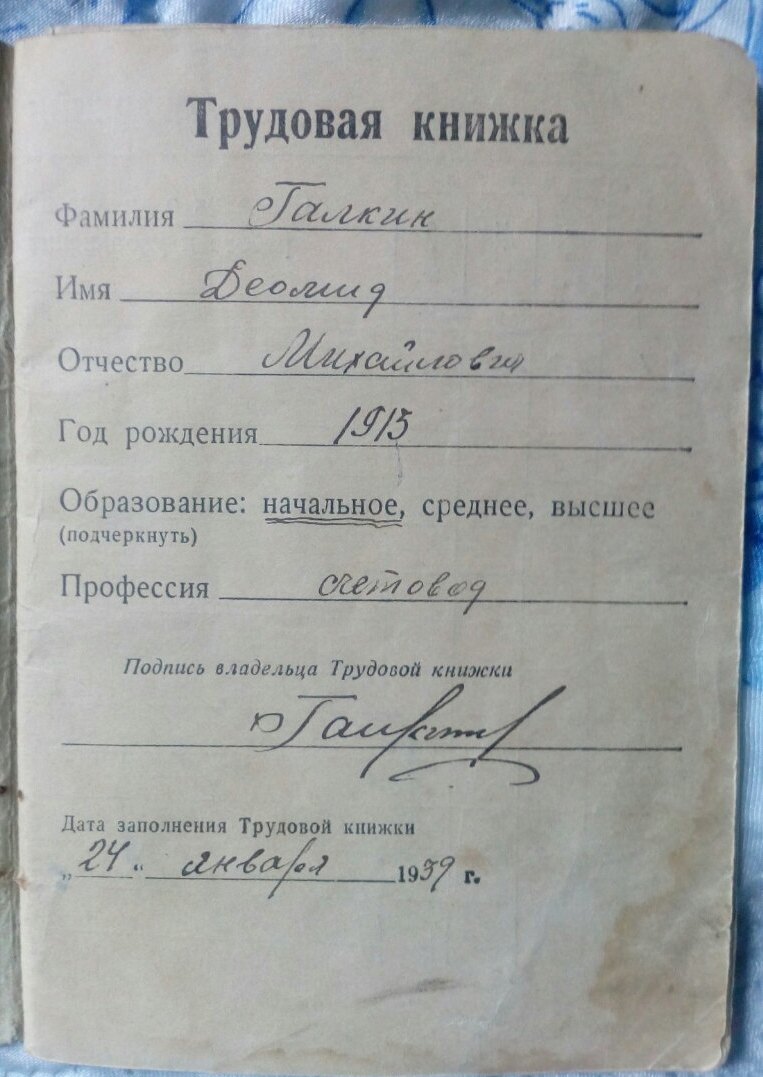 Трудовая книжка
Фамилия Галкин
Имя Деомид
Отчество Михайлович
Год рождения 1915
Образование: начальное, среднее, высшее
(подчеркнуть)
Профессия счетовод
Подпись владельца Трудовой книжки
Галкин
Дата заполнения Трудовой книжки
„24“ января 1939 г.